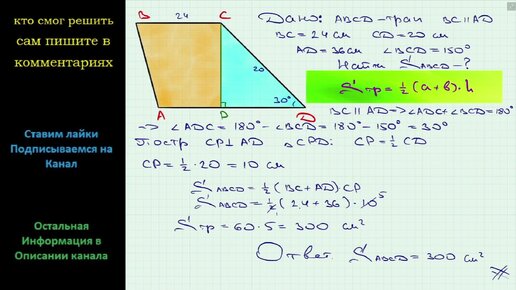 кто смог решить
сам пишите в
комментариях
Ставим лайки
Подписываемся на
Канал
Остальная
Информация в
Описании канала
B 24 C
20
30°
A D D
Дано: ABCD-трап BC∥AD
BC = 24 см CD = 20 см
AD = 36 см ∠BCD = 150°
Найти SABCD - ?
Sтр = 1/2 (a+b)·h
BC ∥ AD => ∠ADC + ∠BCD = 180°
=> ∠ADC = 180° - ∠BCD = 180° - 150° = 30°
Постр CP⊥AD △CPD: CP = 1/2 CD
CP = 1/2 · 20 = 10 см
SABCD = 1/2 (BC + AD) · CP
SABCD = 1/2 (24 + 36) · 10 5
Sтр = 60 · 5 = 300 см²
Ответ. SABCD = 300 см²